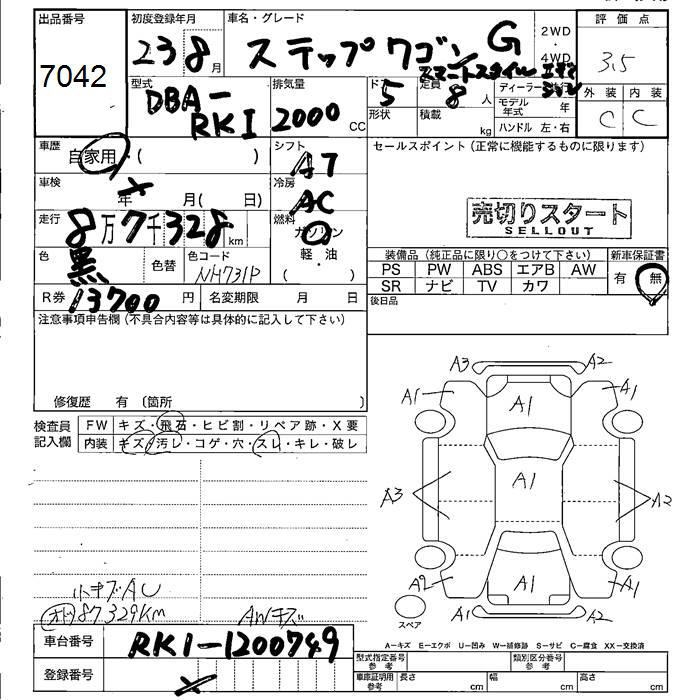 出品番号 初度登録年月 車名・グレード 2WD 評価点
7042 23 8月 ステップワゴン G 4WD 3.5
スマートスタイル エディション
型式 排気量 ドア 定員 ディーラー 並行 外装 内装
DBA-RK1 2000 CC 5 8人 モデル年式 年 C C
形状 積載 kg ハンドル 左・右
車歴 自家用・( ) シフト AT セールスポイント（正常に機能するものに限ります）
車検 年 月( 日) 冷房 AC 売切りスタート
SELLOUT
走行 8万7千328km 燃料 ガソリン
軽・油
( )
色 黒 色替 色コード NH731P 装備品（純正品に限り○をつけて下さい） 新車保証書
PS PW ABS エアB AW 有 無
SR ナビ TV カワ
R券 13700円 名変期限 月 日 後日品
注意事項申告欄（不具合内容等は具体的に記入して下さい）
修復歴 有（箇所 ）
検査員 FW キズ・飛石・ヒビ割・リペア跡・X要
記入欄 内装 キズ・汚レ・コゲ・穴・スレ・キレ・破レ
A3 A2
A1 A1 A1
A3 A1 A2
A2 A1 A1
A1 A2
スペア
小キズAU
87329KM AWキズ
車台番号 RK1-1200749
A-キズ E-エクボ U-凹み W-補修跡 S-サビ C-腐食 XX-交換済
登録番号
型式指定番号 参考 類別区分番号 参考
車庫証明用 参考 長さ cm 幅 cm 高さ cm